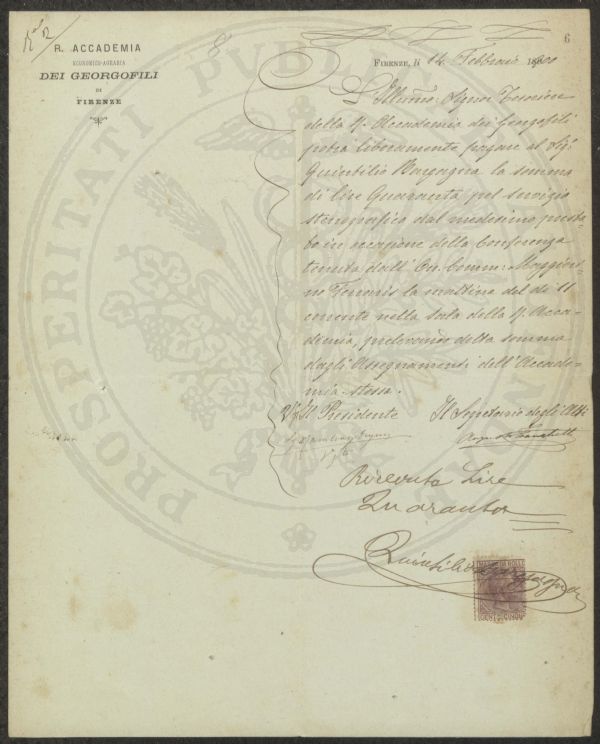 N° 2
8
6
R. ACCADEMIA
ECONOMICO-AGRARIA
DEI GEORGOFILI
DI
FIRENZE
FIRENZE, li 14 Febbraio 1900
L'Illmo. Signor Tesoriere
della R. Accademia dei Georgofili
potrà liberamente pagare al Sig.
Quintilio Bargagna la somma
di lire Quaranta pel servizio
stenografico dal medesimo presta-
to in occasione della Conferenza
tenuta dall' On. Comm. Maggiori-
no Ferraris la mattina del dì 11
corrente nella sala della R. Acca-
demia, prelevando detta somma
dagli Assegnamenti dell' Accade-
mia stessa.
V° Il Presidente
Il Segretario degli Atti
Ricevuto Lire
Quaranta
Quintilio Bargagna
CENT. CINQUE
PROSPERITATI PUBLICAE